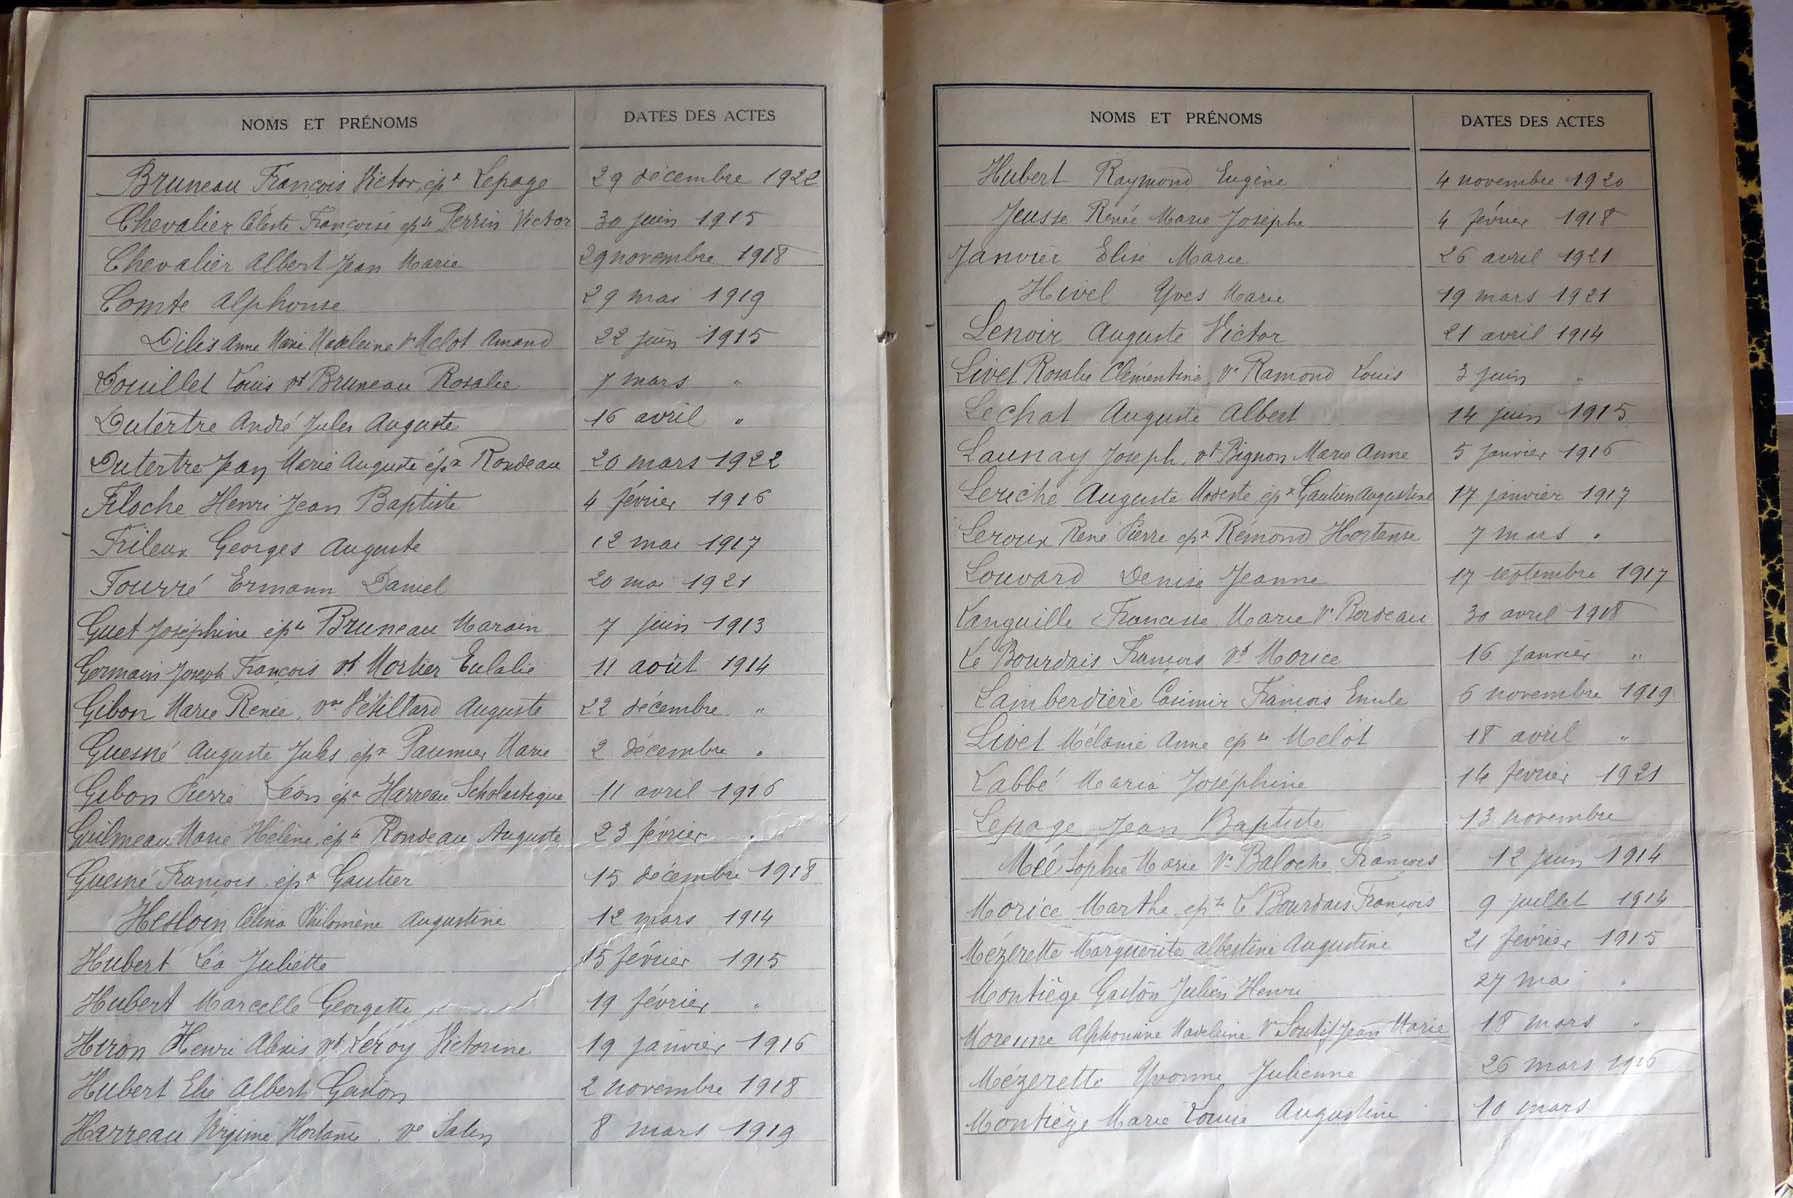 NOMS ET PRÉNOMS DATES DES ACTES
Bruneau François Victor, épx Lepage 29 décembre 1922
Chevalier Céleste Françoise épse Perrin Victor 30 juin 1915
Chevalier Albert Jean Marie 29 novembre 1918
Comte Alphonse 29 mai 1919
Dilis Anne Marie Madeleine Ve Melot Amand 22 juin 1915
Douillet Louis vf Bruneau Rosalie 7 mars "
Dutertre André Jules Auguste 16 avril "
Dutertre Jean Marie Auguste épx Rondeau 20 mars 1922
Filoche Henri Jean Baptiste 4 février 1916
Frileux Georges Auguste 12 mai 1917
Fourré Ermann Daniel 20 mai 1921
Guet Joséphine épse Bruneau Marain 7 juin 1913
Germain Joseph François vf Mortier Eulalie 11 août 1914
Gibon Marie Renée, vve Vétillard Auguste 22 décembre "
Guesné Auguste Jules épx Paumier Marie 2 décembre "
Gibon Pierre Léon épx Harreau Scholastique 11 avril 1916
Guilmeau Marie Hélène, épse Rondeau Auguste 23 février "
Guesné François épx Gautier 15 décembre 1918
Hesloin Célina Philomène Augustine 12 mars 1914
Hubert Léa Juliette 15 février 1915
Hubert Marcelle Georgette 19 février "
Huron Henri Alexis vf Leroy Victorine 19 janvier 1916
Hubert Elie Albert Gaston 2 novembre 1918
Harreau Virginie Hortanse ve Salin 8 mars 1919
NOMS ET PRÉNOMS DATES DES ACTES
Hubert Raymond Eugène 4 novembre 1920
Jeusse Renée Marie Josèphe 4 février 1918
Janvier Elise Marie 26 avril 1921
Hivel Yves Marie 19 mars 1921
Lenoir Auguste Victor 21 avril 1914
Livet Rosalie Clémentine, Ve Ramond Louis 3 juin "
Lechat Auguste Albert 14 juin 1915
Launay Joseph, vf Bignon Marie Anne 5 janvier 1916
Leriche Auguste Modeste épx Gautier Augustine 17 janvier 1917
Leroux René Pierre épx Rémond Hortense 7 mars "
Louvard Denise Jeanne 17 septembre 1917
Languille Francine Marie Ve Bordeau 30 avril 1918
Le Bourdais François Vf Morice 16 janvier "
Lamberdière Casimir François Emile 6 novembre 1919
Livet Mélanie Anne épse Melot 18 avril "
Labbé Maria Joséphine 14 février 1921
Lepage Jean Baptiste 13 novembre
Méé Sophie Marie Ve Baloche François 12 juin 1914
Morice Marthe, épse Le Bourdais François 9 juillet 1914
Mézerette Marguerite Albertine Augustine 21 février 1915
Montiège Gaston Julien Henri 27 mai "
Moreune Alphonsine Madeleine Ve Soutif Jean Marie 18 mars "
Mézerette Yvonne Julienne 26 mars 1916
Montiège Marie Louise Augustine 10 mars